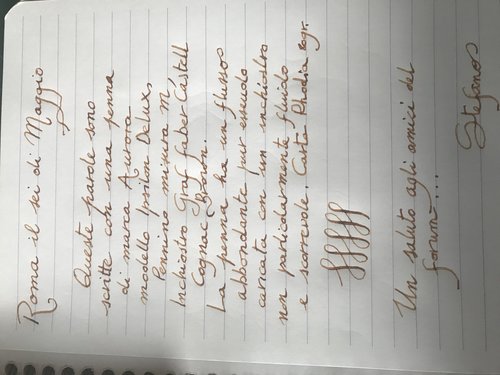 Roma il sei di Maggio
Queste parole sono
scritte con una penna
di marca Aurora
modello Ipsilon Delux,
Pennino misura M
Inchiostro Graf faber Castell
Cognac Brown.
La penna ha un flusso
abbondante pur essendo
caricata con un inchiostro
non particolarmente fluido
e scorrevole. Carta Rhodia 80gr.
Un saluto agli amici del
forum....
Stefano